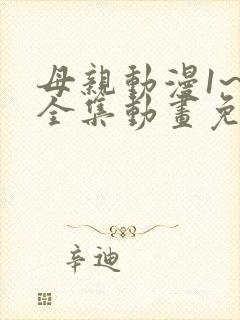 母親動漫1~
全集動畫免
辛迪